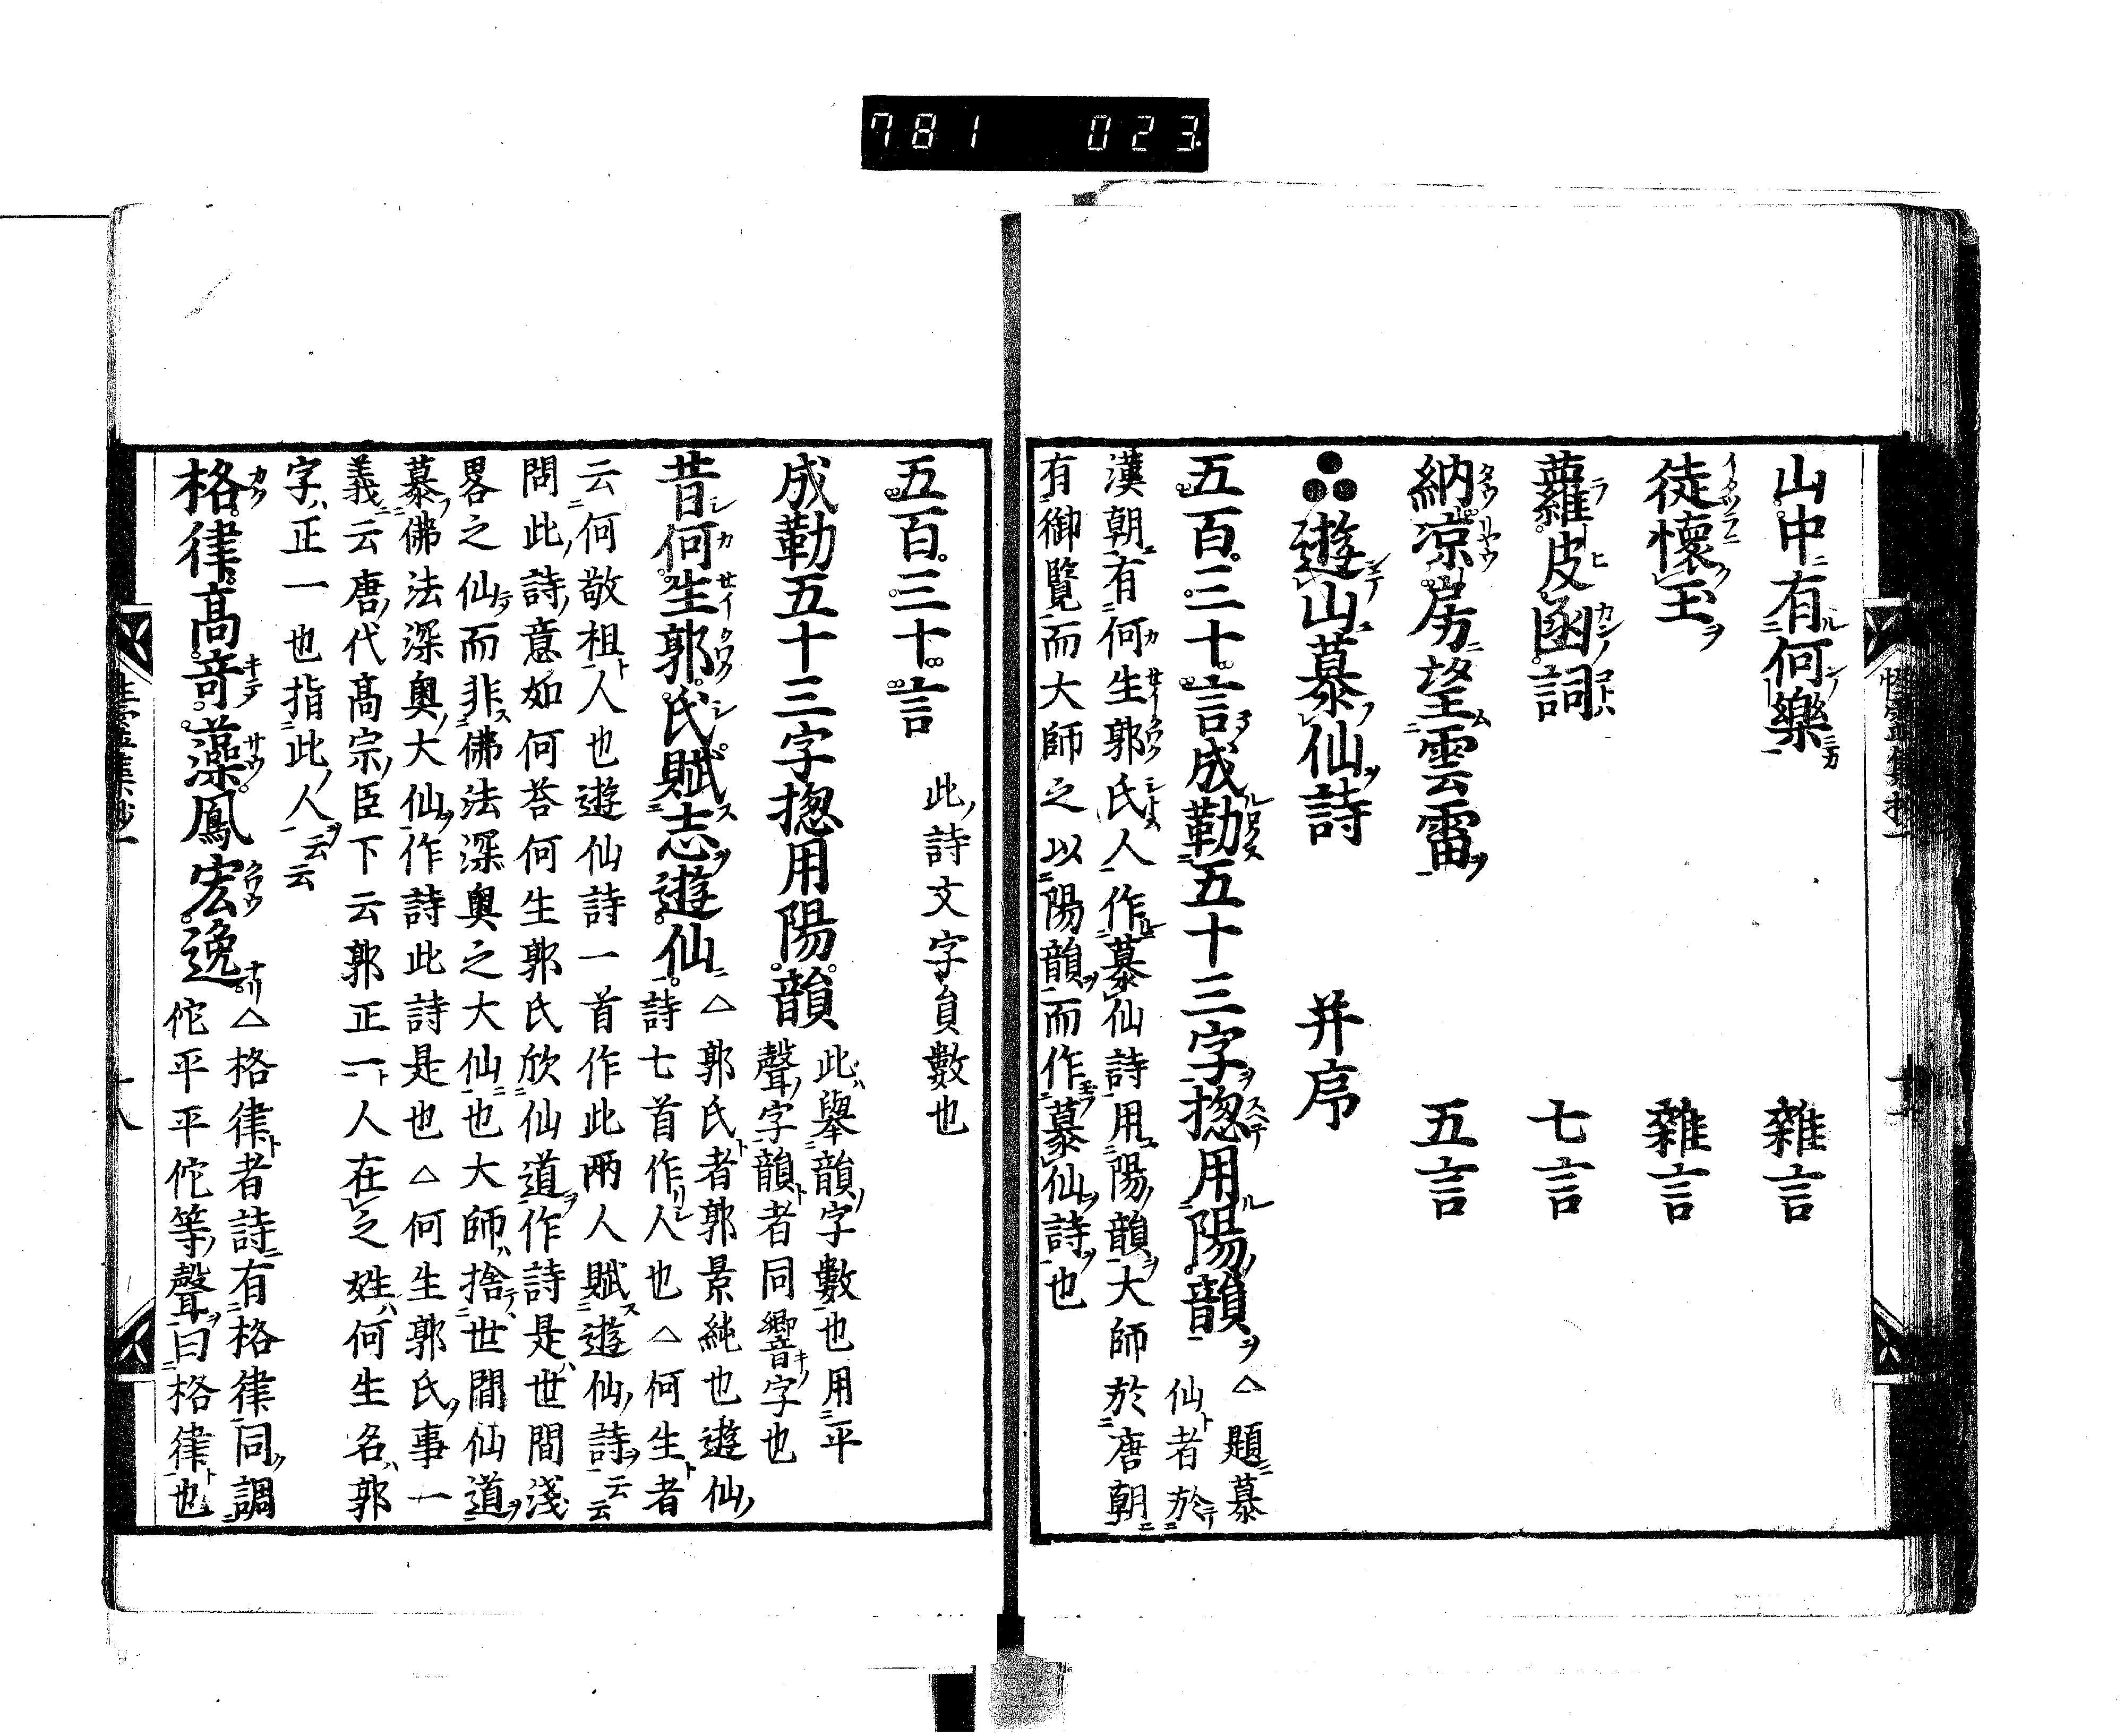 781 023
山中有何樂 雜言
徒懷玉 雜言
蘿皮函詞 七言
納凉房望雲雷 五言
遊山慕仙詩 并序
五百三十言成勒五十三字捴用陽韻 △題慕
仙者於
漢朝有何生郭氏人作慕仙詩用陽韻大師於唐朝
有御覧而大師之以陽韻而作慕仙詩也
五百三十言 此詩文字員數也
成勒五十三字捴用陽韻 此舉韻字數也用平
聲字韻者同響字也
昔何生郭氏賦志遊仙 △郭氏者郭景純也遊仙
詩七首作人也△何生者
云何敬祖人也遊仙詩一首作此兩人賦遊仙詩云云
問此詩意如何荅何生郭氏欣仙道作詩是世間淺
畧之仙而非佛法深奧之大仙也大師捨世間仙道
慕佛法深奧大仙作詩此詩是也△何生郭氏事一
義云唐代高宗臣下云郭正一人在之姓何生名郭
字正一也指此人云云
格律高奇藻鳳宏逸 △格律者詩有格律同調
佗平平佗等聲曰格律也